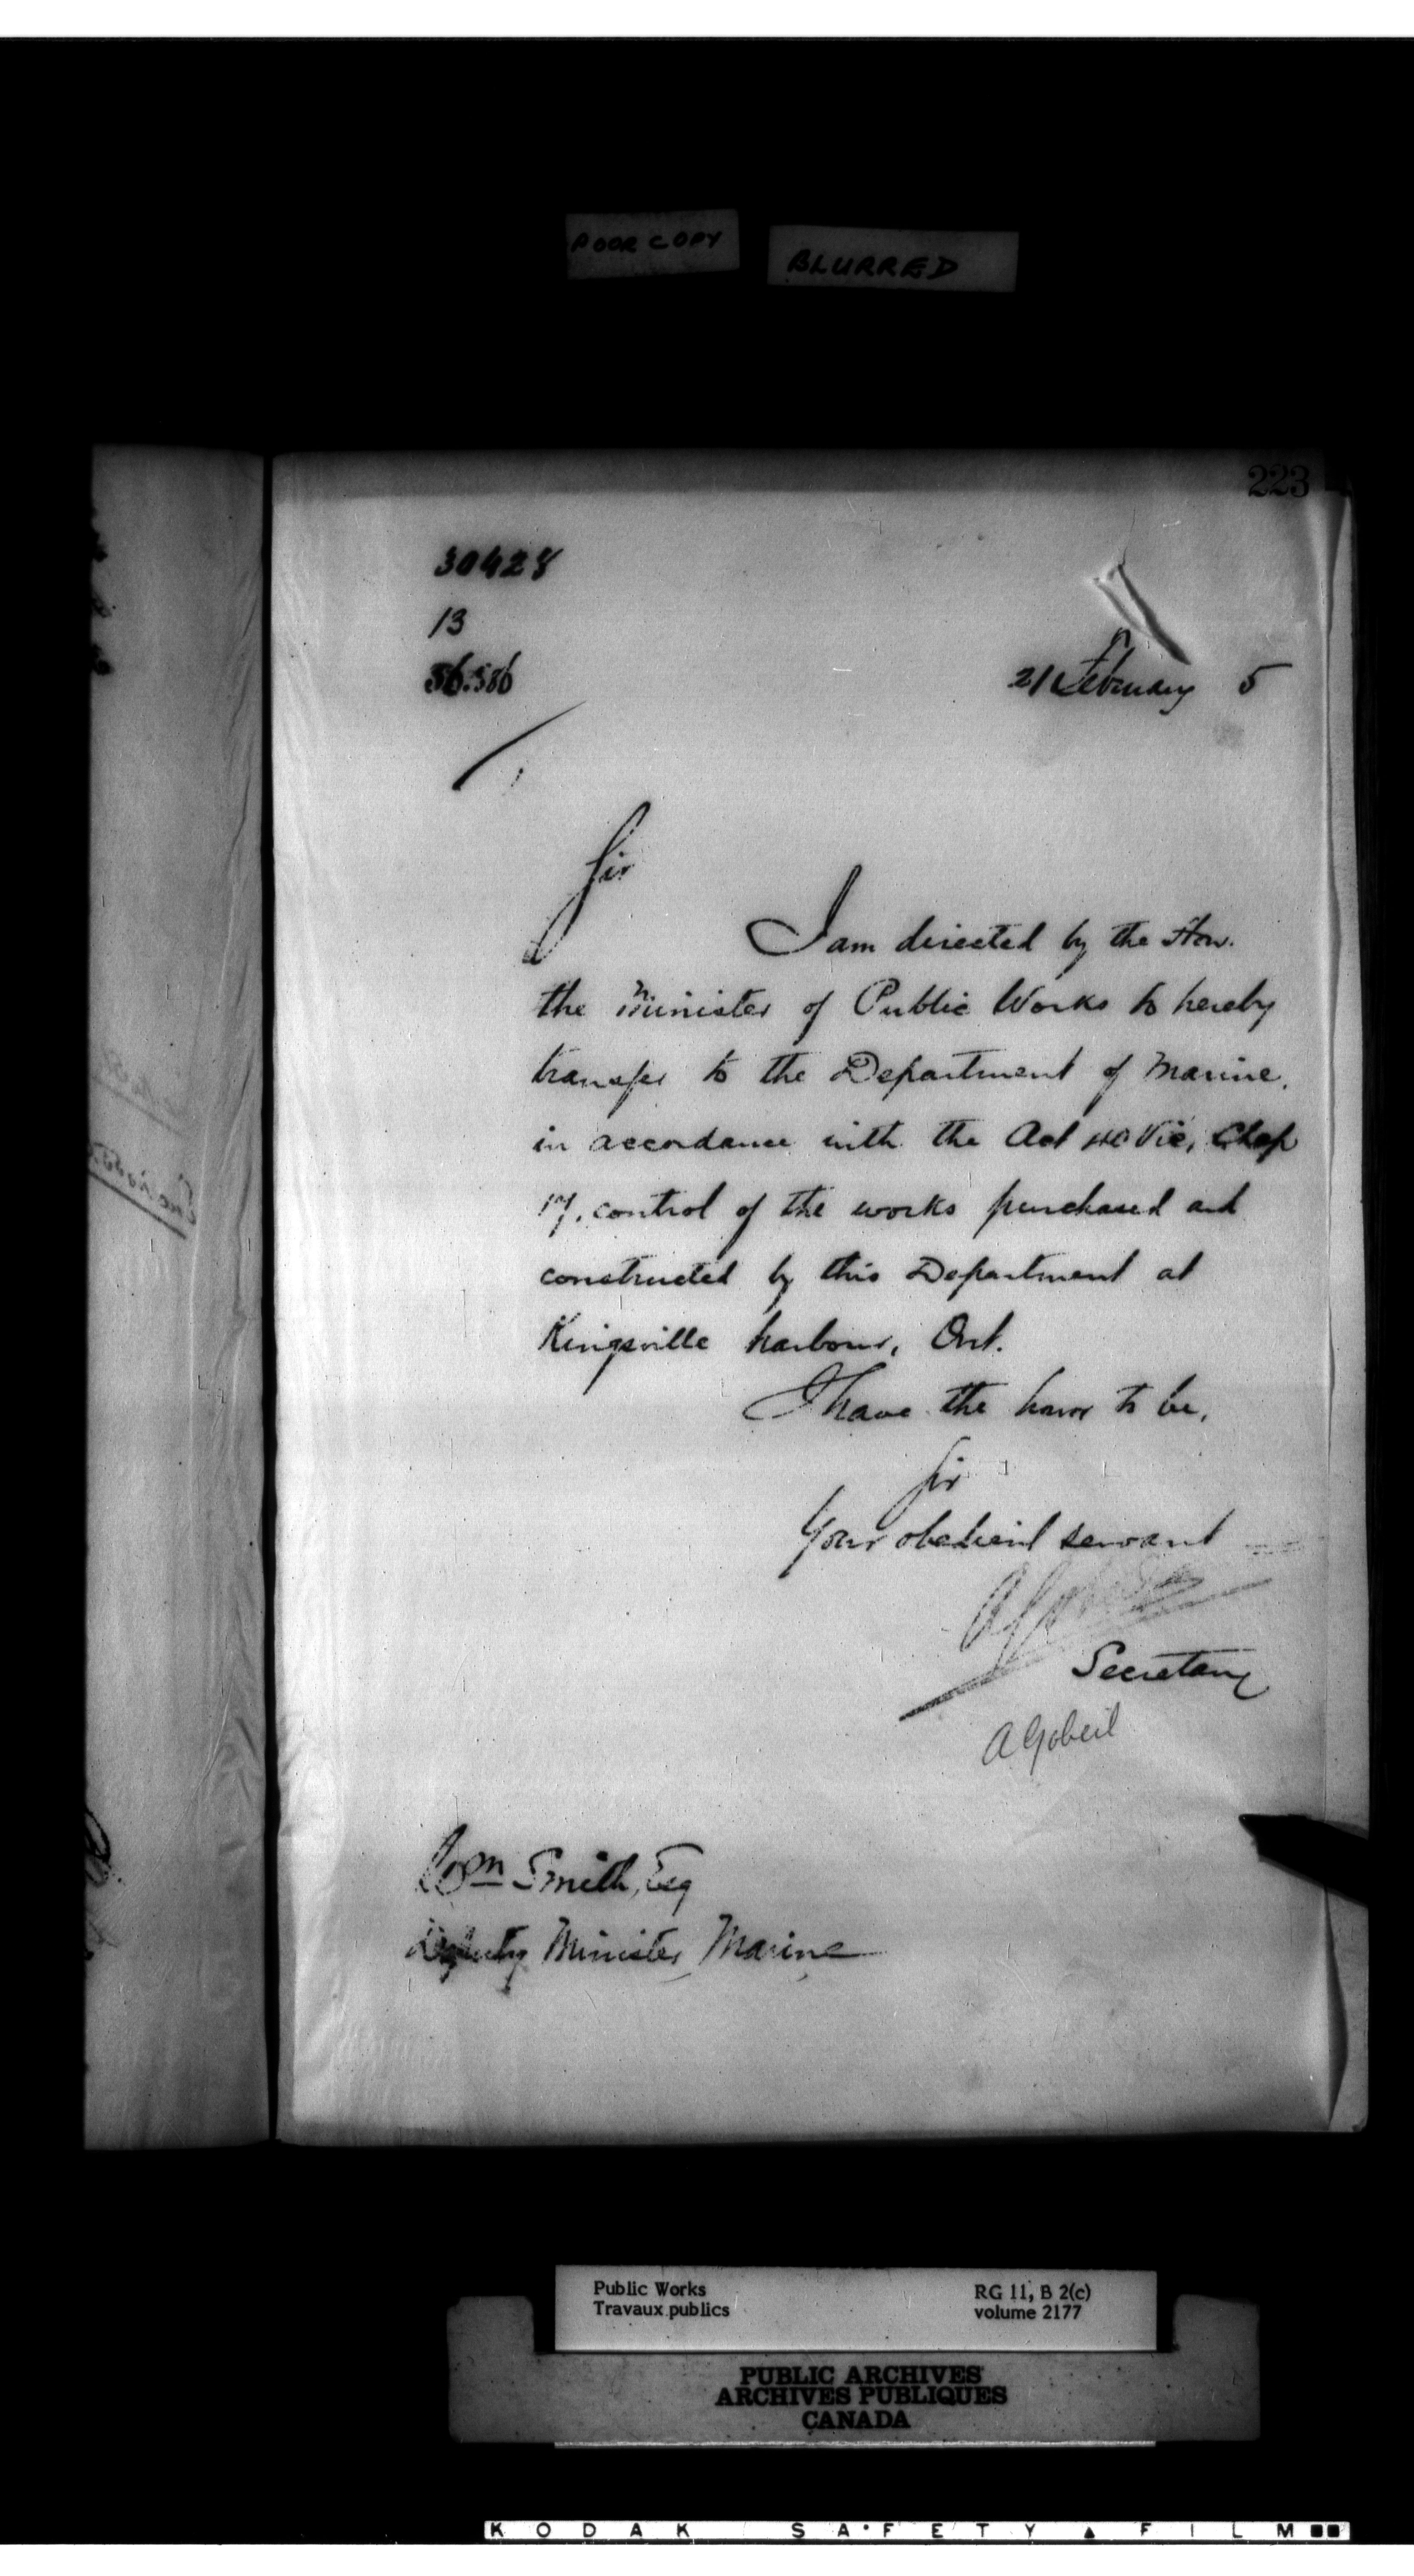 POOR COPY
BLURRED
223
30428
13
56.586
21 February 5
Sir
I am directed by the Hon.
the Minister of Public Works to hereby
transfer to the Department of Marine,
in accordance with the Act 40 Vic, Chap
17, control of the works purchased and
constructed by this Department at
Kingsville harbour, Ont.
I have the honor to be,
Sir
Your obedient servant
A Gobeil
Secretary
A Gobeil
Wm Smith, Esq
Deputy Minister Marine
Public Works
Travaux publics
RG 11, B 2(c)
volume 2177
PUBLIC ARCHIVES
ARCHIVES PUBLIQUES
CANADA
KODAK SAFETY FILM